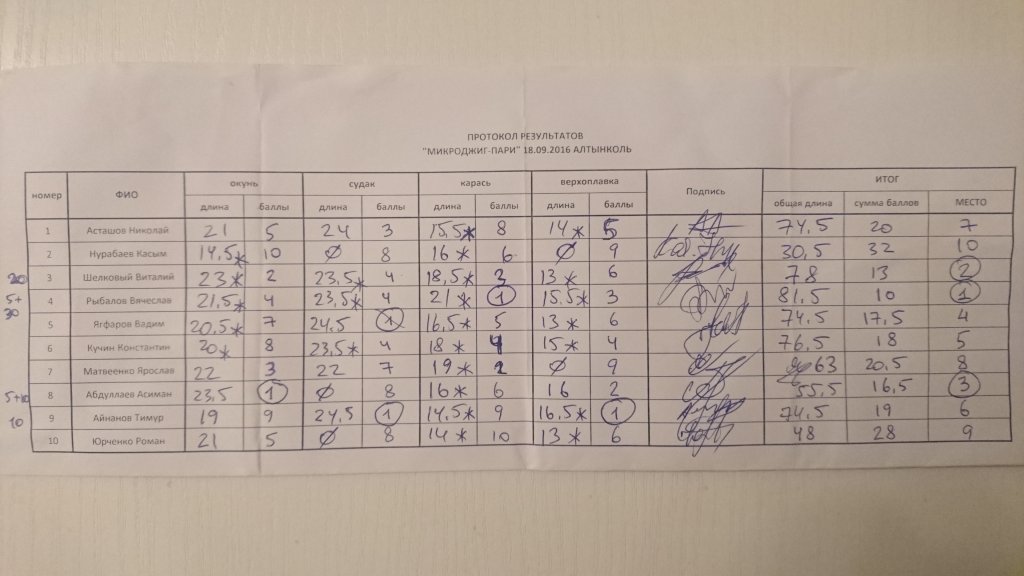 ПРОТОКОЛ РЕЗУЛЬТАТОВ
"МИКРОДЖИГ-ПАРИ" 18.09.2016 АЛТЫНКОЛЬ
номер ФИО окунь судак карась верхоплавка Подпись ИТОГ
длина баллы длина баллы длина баллы длина баллы общая длина сумма баллов МЕСТО
1 Асташов Николай 21 5 24 3 15,5* 8 14* 5 74,5 20 7
2 Нурабаев Касым 14,5* 10 Ø 8 16* 6 Ø 9 30,5 32 10
20 3 Шелковый Виталий 23* 2 23,5* 4 18,5* 3 13* 6 78 13 2
5+30 4 Рыбалов Вячеслав 21,5* 4 23,5* 4 21* 1 15,5* 3 81,5 10 1
5 Ягфаров Вадим 20,5* 7 24,5 1 16,5* 5 13* 6 74,5 17,5 4
6 Кучин Константин 20* 8 23,5* 4 18* 4 15* 4 76,5 18 5
7 Матвеенко Ярослав 22 3 22 7 19* 2 Ø 9 63 20,5 8
5+10 8 Абдуллаев Асиман 23,5 1 Ø 8 16* 6 16 2 55,5 16,5 3
10 9 Айнанов Тимур 19 9 24,5 1 14,5* 9 16,5* 1 74,5 19 6
10 Юрченко Роман 21 5 Ø 8 14* 10 13* 6 48 28 9